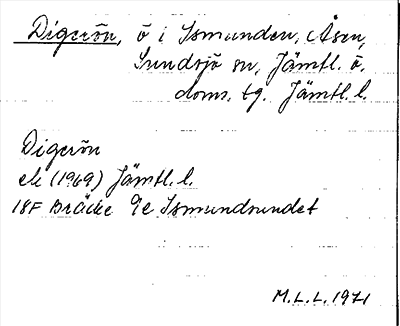 Digerön, ö i Ismunden, Åsen,
Sundsjö sn, Jämtl. ö.
doms. tg. Jämtl. l.
Digerön
ek (1969) Jämtl. l.
18F Bräcke 9e Ismundsundet
M.L.L. 1971